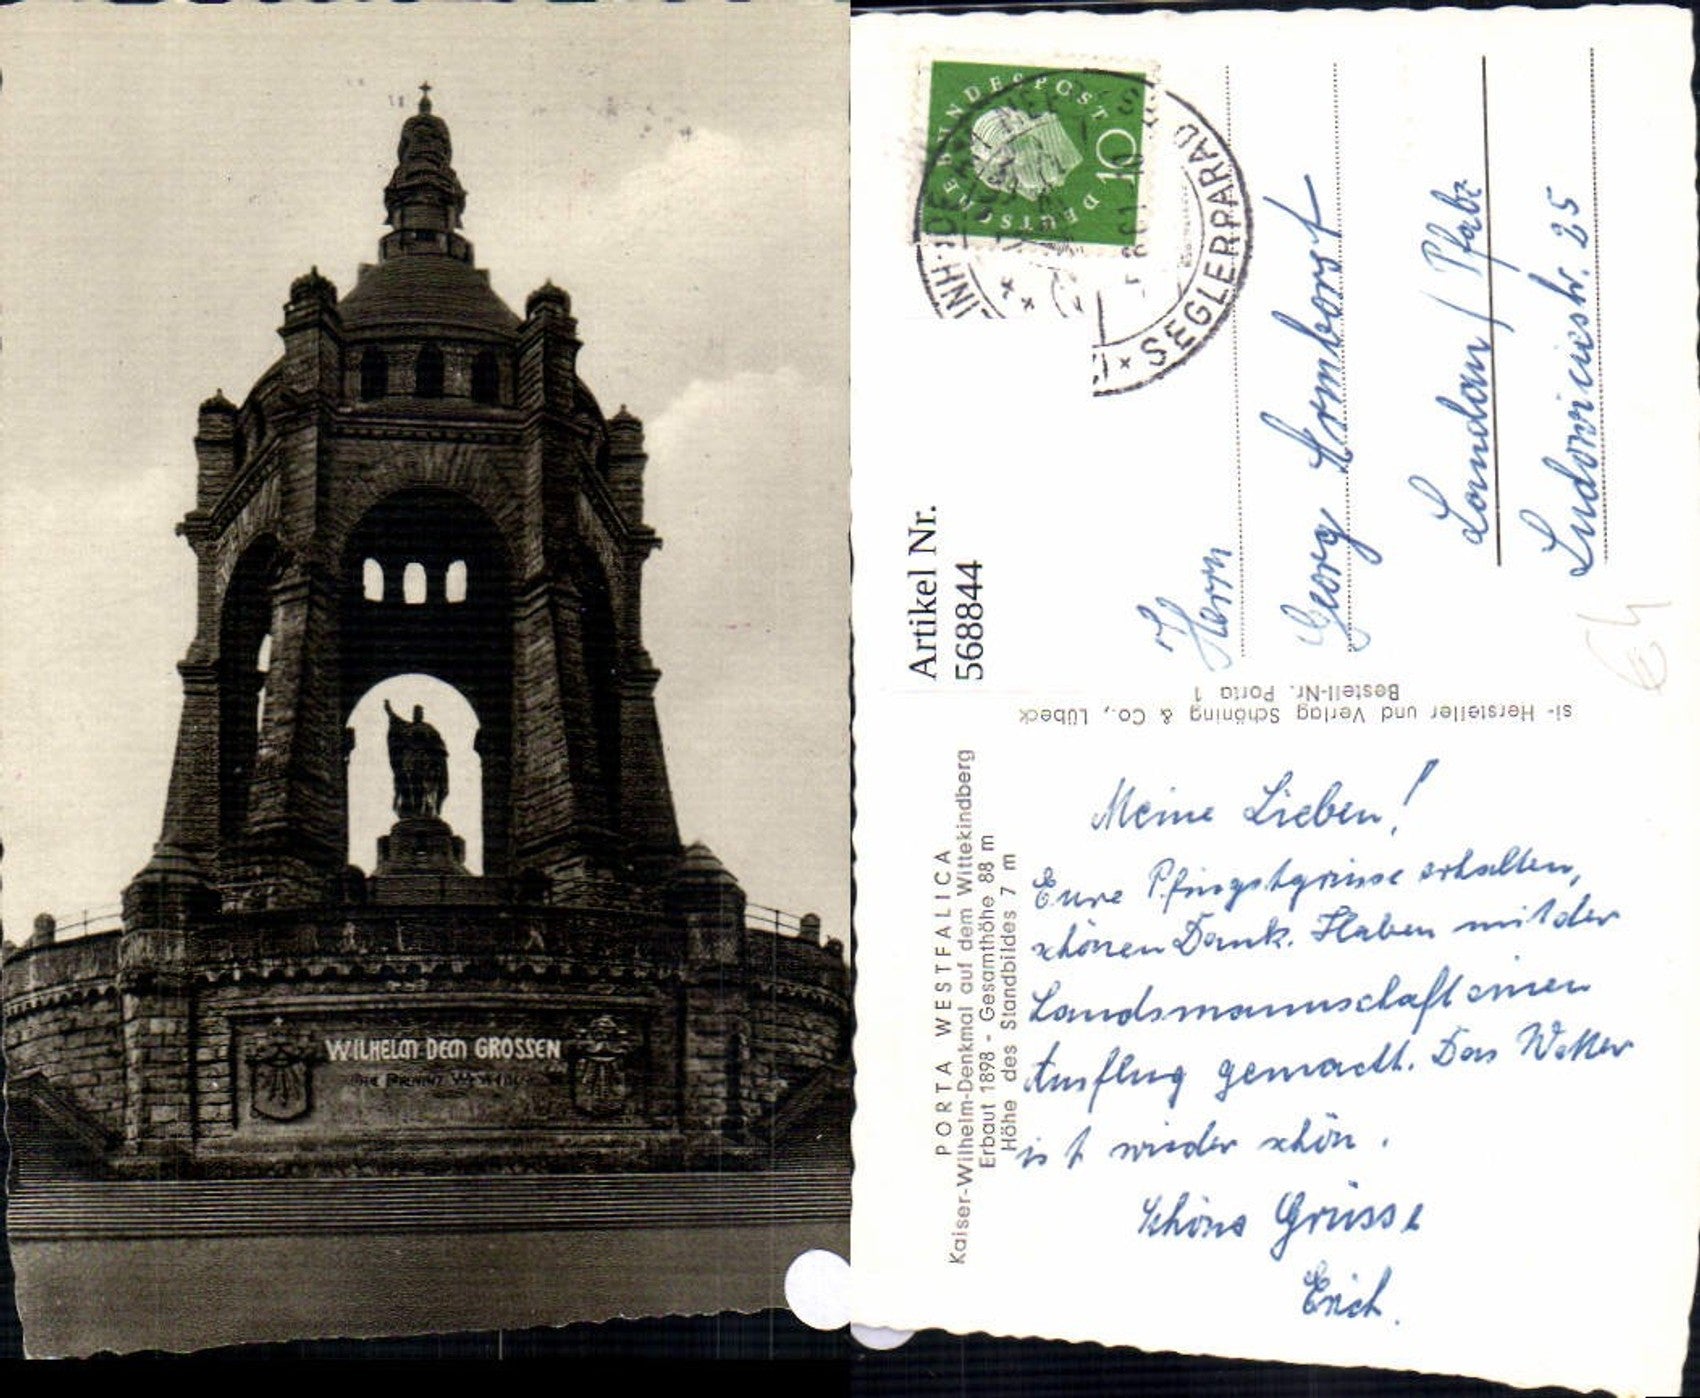 WILHELM DEM GROSSEN
DIE PROVINZ WESTFALEN
DEUTSCHE BUNDESPOST
10
SEGLERPARAD
Artikel Nr.
568844
Herrn
Georg Armborst
Landau / Pfalz
Ludowicistr. 25
si- Hersteller und Verlag Schöning & Co., Lübeck
Bestell-Nr. Porta 1
PORTA WESTFALICA
Kaiser-Wilhelm-Denkmal auf dem Wittekindberg
Erbaut 1898 - Gesamthöhe 88 m
Höhe des Standbildes 7 m
Meine Lieben!
Eure Pfingstgrüsse erhalten,
schönen Dank. Haben mit der
Landsmannschaft einen
Ausflug gemacht. Das Wetter
ist wieder schön.
Schöne Grüsse
Erich.